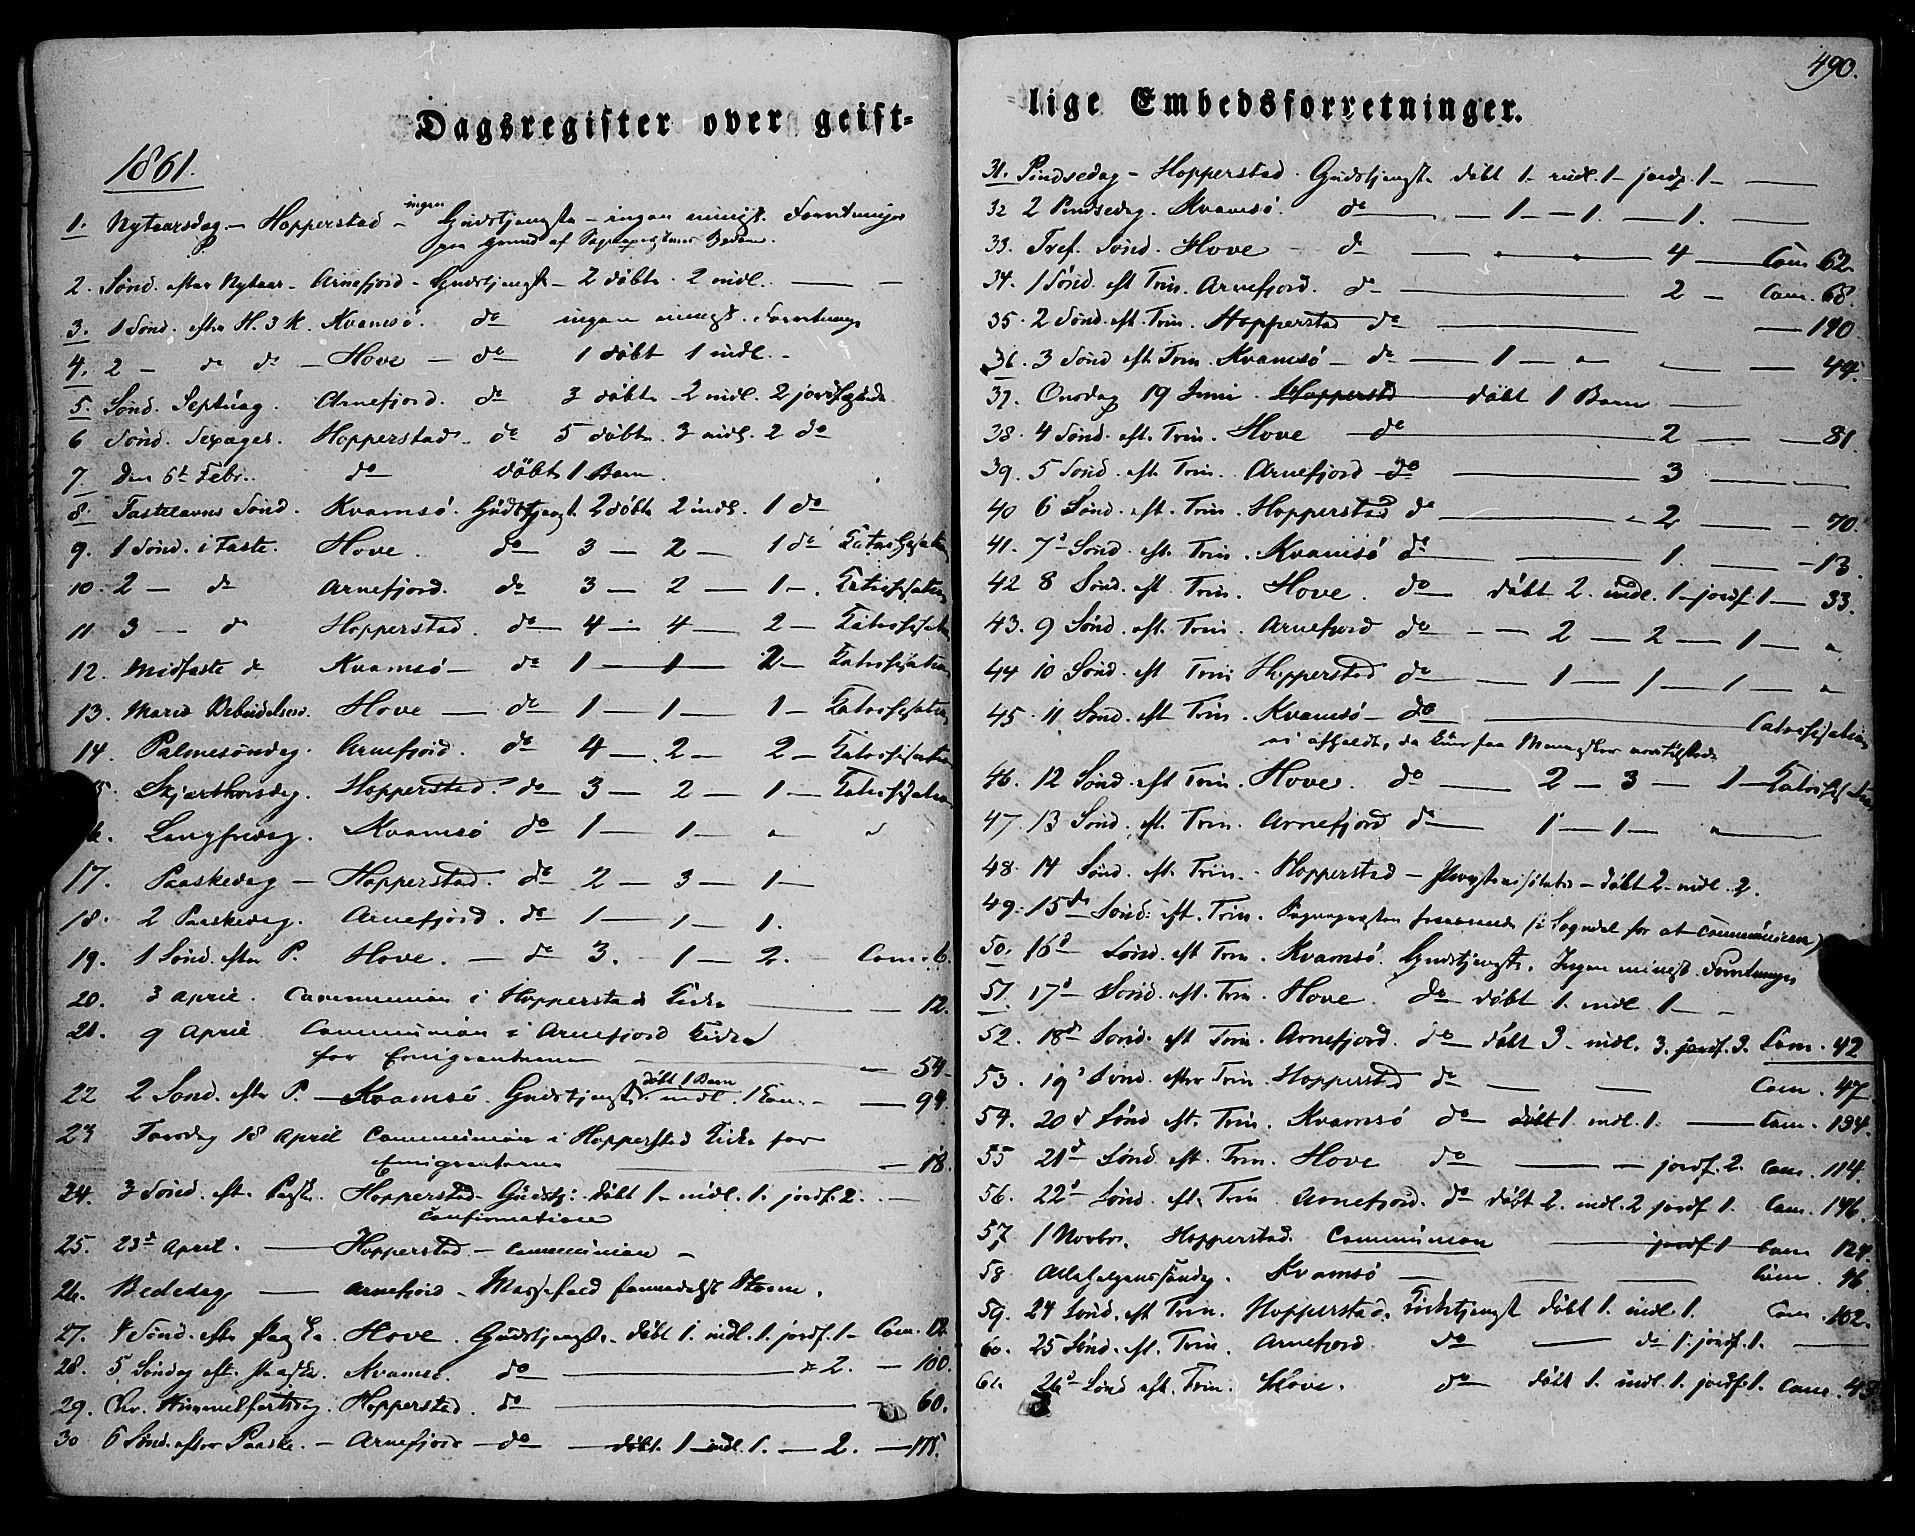 Dagsregister over geist-
1861.
1. Nytaarsdag - Hopperstad - ingen Gudstjeneste - ingen minist. Forretninger
paa Grund af Sognepræstens
2. Sønd. efter Nytaar - Arnefjord - Gudstjeneste - 2 døbte. 2 indl. — —
3. 1 Sønd. efter H. 3 K. Kvamsø. do ingen minist. Forretninger
4. 2 - do do - Hove - do 1 døbt 1 indl. -
5. Sønd. Septuag. Arnefjord. do 3 døbte 2 indl. 2 jordfæstede
6 Sønd. Sexages. Hopperstad. do 5 døbte. 3 indl. 2 do
7 Den 6te Febr. do døbt 1 Barn.
8. Fastelavns Sønd. Kvamsø. Gudstjenst. 2 døbte 2 indl. 1 do
9. 1 Sønd. i Faste. Hove. do 3 — 2 — 1 do Catechisation
10. 2 - do Arnefjord. do 3 — 2 — 1 -. Catechisation
11 3 - do Hopperstad. do 4 — 4 — 2 - Catechisation
12. Midfaste do Kvamsø - do 1 — 1 — 2 - Catechisation
13. Mariæ Bebudelses. Hove - do 1 — 1 — 1 - Catechisation
14. Palmesøndag. Arnefjord. do 4 — 2 — 2 - Catechisation
15. Skjærthorsdag. Hopperstad. do 3 — 2 — 1 - Catechisation
16. Langfredag. Kvamsø do 1 — 1 — " "
17. Paaskedag - Hopperstad. do 2 — 3 — 1 —
18. 2 Paaskedag. Arnefjord. do 1 — 1 — 1.
19. 1 Sønd. efter P. Hove. - do 3. - 1 — 2. Com. 6.
20. 3 April. Communion i Hopperstads Kirke — 12.
21. 9 April. Communion i Arnefjord Kirke
for Emigranterne — 54.
22 2 Sønd. efter P. - Kvamsø. Gudstjenst. døbt 1 Barn indl. 1 Com. - — 94.
23 Torsdag 18 April Communion i Hopperstad Kirke for
Emigranterne — 18.
24. 3 Sønd. eft. Paaske. Hopperstad - Gudstj. døbt 1 - indl. 1. jordf. 2. —
Confirmation
25. 23d April. — Hopperstad - Communion -
26. Bededag — Arnefjord - Messefald formedelst Storm.
27. 4 Sønd. efter Paaske. Hove. Gudstjenste. døbt 1. indl. 1. jordf. 1 - Com. 12.
28. 5. Søndag eft. Paaske. Kvamsø. do — 2. — 100.
29. Chr. Himmelfartsdag. Hopperstad. do — 60.
30 6 Sønd. efter Paaske. - Arnefjord - do — døbt 1 - indl. 1. — 2. — 175.
490.
lige Embedsforretninger.
31. Pindsedag - Hopperstad. Gudstjenste døbt 1 - indl. 1 - jordf. 1 - —
32 2 Pindsedag. Kvamsø. do — 1 — 1. — 1. —
33. Tref. Sønd. Hove - do — 4 — Com. 62.
34. 1 Sønd. eft Trin. Arnefjord. do — 2 — Com. 68.
35. 2 Sønd. eft. Trin. Hopperstad do — — 190
36. 3 Sønd eft Trin. Kvamsø - do — 1 — " — 49.
37. Onsdag 19 Juni. Hopperstd døbt 1 Barn —
38. 4 Sønd. eft. Trin. Hove do — 2 — — 81.
39. 5 Sønd. eft Trin. Arnefjord do — 3 — —
40 6 Sønd. eft. Trin. Hopperstad do — 2 — - 70.
41. 7d Sønd. eft. Trin. Kvamsø do — 1. — - 13.
42 8 Sønd. eft Trin. Hove. do — døbt 2. indl. 1 - jordf. 1 — 33.
43. 9 Sønd. eft. Trin. Arnefjord do - — 2 — 2 — 1 — "
44 10 Sønd. eft Trin Hopperstad do — — 1 — 1 — 1 — "
45. 11 Sønd. eft Trin. Kvamsø - do — Catechisation
ei afholdt, da kun faa Mennesker vare tilstede
46. 12 Sønd. eft Trin. Hove. do — 2 — 3 — 1 - Catechisation
47. 13 Sønd. eft. Trin. Arnefjord do — 1 — 1 — " —
48. 14 Sønd. eft. Trin. - Hopperstad - Provstevisitats - døbt 2 - indl. 2.
49. 15de Sønd. eft. Trin. Sognepræsten fraværende (i Sogndal for at communicere)
50. 16d Sønd. eft. Trin. Kvamsø. Gudstjenste. Ingen minist. Forretninger
51. 17d Sønd. eft. Trin. Hove. do døbt 1. indl. 1 - -
52. 18d Sønd. eft Trin. Arnefjord. do døbt 3 - indl. 3. jordf. 3. Com. 42
53. 19d Sønd. efter Trin. Hopperstad do — — Com. 47.
54. 20d Sønd eft. Trin. Kvamsø do døbt 1. indl. 1. — Com. 134.
55 21d Sønd. eft. Trin. Hove do — — jordf. 2. Com. 114.
56. 22d Sønd. eft. Trin Arnefjord. do døbt 2. indl. 2 jordf 1. Com. 146.
57 1 Novbr. Hopperstad. Communion — jordf 1 — Com 124.
58 Allehelgenssøndg. Kvamsø — — Com. 46.
59. 24 Sønd. eft Trin. Hopperstad. Gudstjenst døbt 1. indl. 1. Com. 102.
60. 25 Sønd. eft. Trin. Arnefjord. do — do 1. jordf. 1. —
61. 26d Sønd eft. Trin. Hove. do døbt 1. indl. 1. jordf. 1. Com. 43